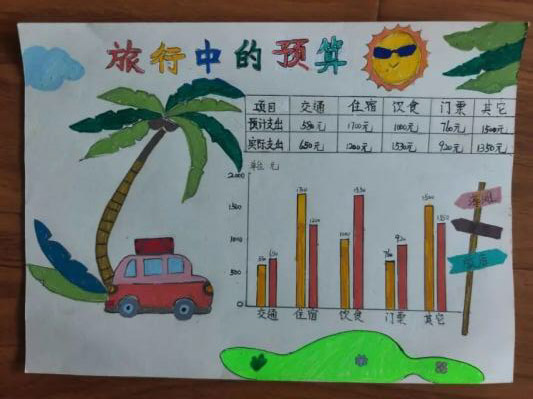 旅行中的预算
项目 交通 住宿 饮食 门票 其它
预计支出 580元 1700元 1000元 760元 1500元
实际支出 650元 1200元 1530元 920元 1350元
单位 元
2000
1500
1000
500
0
1700 1200 1000 1500 1350
交通 住宿 饮食 门票 其它
酒店